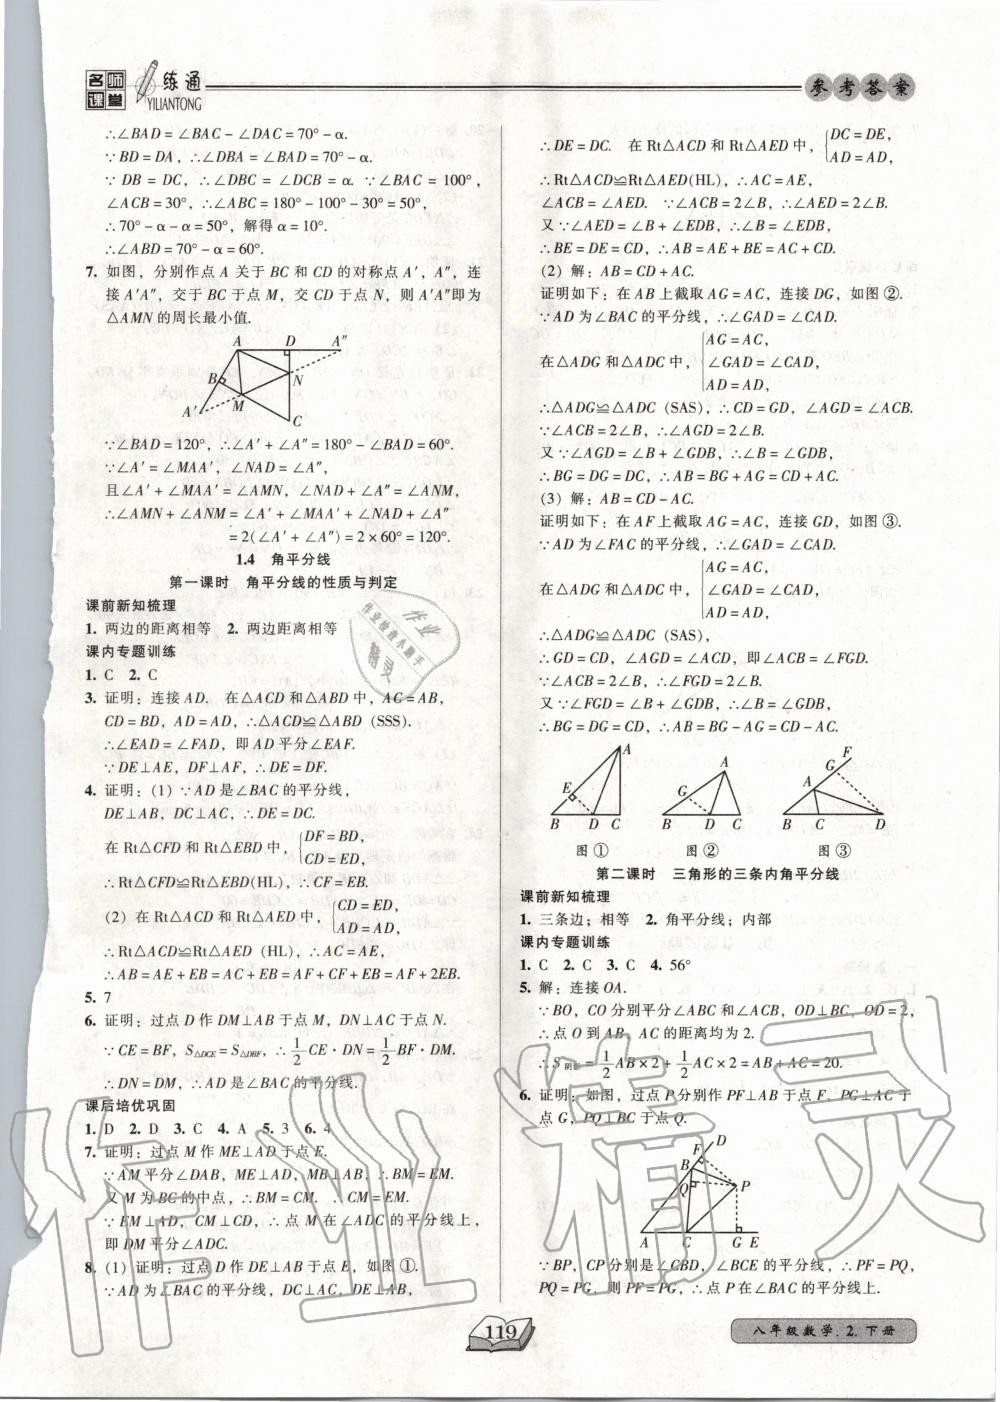 名师课堂 一练通
YILIANTONG
参考答案
∴∠BAD=∠BAC-∠DAC=70°-α.
∵BD=DA,∴∠DBA=∠BAD=70°-α.
∵DB=DC,∴∠DBC=∠DCB=α. ∵∠BAC=100°,
∠ACB=30°,∴∠ABC=180°-100°-30°=50°,
∴70°-α-α=50°,解得α=10°.
∴∠ABD=70°-α=60°.
7. 如图,分别作点A关于BC和CD的对称点A′,A″,连
接A′A″,交于BC于点M,交CD于点N,则A′A″即为
△AMN的周长最小值.
A D A″
B N
A′ M
C
∵∠BAD=120°,∴∠A′+∠A″=180°-∠BAD=60°.
∵∠A′=∠MAA′,∠NAD=∠A″,
且∠A′+∠MAA′=∠AMN,∠NAD+∠A″=∠ANM,
∴∠AMN+∠ANM=∠A′+∠MAA′+∠NAD+∠A″
=2(∠A′+∠A″)=2×60°=120°.
1.4 角平分线
第一课时 角平分线的性质与判定
课前新知梳理
1. 两边的距离相等 2. 两边距离相等
课内专题训练
1. C 2. C
3. 证明:连接AD. 在△ACD和△ABD中,AC=AB,
CD=BD,AD=AD,∴△ACD≌△ABD(SSS).
∴∠EAD=∠FAD,即AD平分∠EAF.
∵DE⊥AE,DF⊥AF,∴DE=DF.
4. 证明:(1)∵AD是∠BAC的平分线,
DE⊥AB,DC⊥AC,∴DE=DC.
在Rt△CFD和Rt△EBD中,{DF=BD,
CD=ED,
∴Rt△CFD≌Rt△EBD(HL),∴CF=EB.
(2)在Rt△ACD和Rt△AED中,{CD=ED,
AD=AD,
∴Rt△ACD≌Rt△AED(HL),∴AC=AE,
∴AB=AE+EB=AC+EB=AF+CF+EB=AF+2EB.
5. 7
6. 证明:过点D作DM⊥AB于点M,DN⊥AC于点N.
∵CE=BF,S△DCE=S△DBF,∴1/2CE·DN=1/2BF·DM.
∴DN=DM,∴AD是∠BAC的平分线.
课后培优巩固
1. D 2. D 3. C 4. A 5. 3 6. 4
7. 证明:过点M作ME⊥AD于点E.
∵AM平分∠DAB,ME⊥AD,MB⊥AB,∴BM=EM.
又M为BC的中点,∴BM=CM. ∴CM=EM.
∵EM⊥AD,CM⊥CD,∴点M在∠ADC的平分线上,
即DM平分∠ADC.
8. (1)证明:过点D作DE⊥AB于点E,如图①.
∵AD为∠BAC的平分线,DC⊥AC,DE⊥AB,
∴DE=DC. 在Rt△ACD和Rt△AED中,{DC=DE,
AD=AD,
∴Rt△ACD≌Rt△AED(HL),∴AC=AE,
∠ACB=∠AED. ∵∠ACB=2∠B,∴∠AED=2∠B.
又∵∠AED=∠B+∠EDB,∴∠B=∠EDB,
∴BE=DE=CD,∴AB=AE+BE=AC+CD.
(2)解:AB=CD+AC.
证明如下:在AB上截取AG=AC,连接DG,如图②.
∵AD为∠BAC的平分线,∴∠GAD=∠CAD.
在△ADG和△ADC中,{AG=AC,
∠GAD=∠CAD,
AD=AD,
∴△ADG≌△ADC(SAS),∴CD=GD,∠AGD=∠ACB.
∵∠ACB=2∠B,∴∠AGD=2∠B.
又∵∠AGD=∠B+∠GDB,∴∠B=∠GDB,
∴BG=DG=DC,∴AB=BG+AG=CD+AC.
(3)解:AB=CD-AC.
证明如下:在AF上截取AG=AC,连接GD,如图③.
∵AD为∠FAC的平分线,∴∠GAD=∠CAD.
在△ADG和△ADC中,{AG=AC,
∠GAD=∠CAD,
AD=AD,
∴△ADG≌△ADC(SAS),
∴GD=CD,∠AGD=∠ACD,即∠ACB=∠FGD.
∵∠ACB=2∠B,∴∠FGD=2∠B.
又∵∠FGD=∠B+∠GDB,∴∠B=∠GDB,
∴BG=DG=CD,∴AB=BG-AG=CD-AC.
A E B D C
A G B D C
F G A B C D
图① 图② 图③
第二课时 三角形的三条内角平分线
课前新知梳理
1. 三条边;相等 2. 角平分线;内部
课内专题训练
1. C 2. C 3. C 4. 56°
5. 解:连接OA.
∵BO,CO分别平分∠ABC和∠ACB,OD⊥BC,OD=2,
∴点O到AB,AC的距离均为2.
∴S阴影=1/2AB×2+1/2AC×2=AB+AC=20.
6. 证明:如图,过点P分别作PF⊥AB于点F,PG⊥AC于
点G,PQ⊥BC于点Q.
D
F
B
Q P
A C G E
∵BP,CP分别是∠CBD,∠BCE的平分线,∴PF=PQ,
PQ=PG,则PF=PG,∴点P在∠BAC的平分线上.
119
八年级数学.2.下册
作业
作业检查小助手
精灵
作业精灵